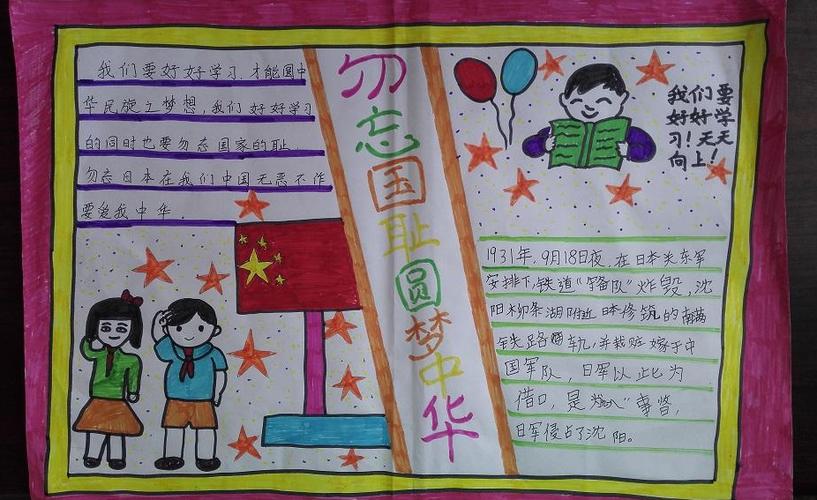 我们要好好学习.才能圆中
华民族之梦想,我们好好学习
的同时也要勿忘国家的耻.
勿忘日本在我们中国无恶不作
要爱我中华.
勿忘国耻圆梦中华
我们要
好好学
习!天天
向上!
1931年.9月18日夜.在日本关东军
安排下,铁道"守备队"炸毁,沈
阳柳条湖附近日本修筑的南满
铁路轨,并栽赃嫁于中
国军队,日军以此为
借口,是 事
日军侵占了沈阳。